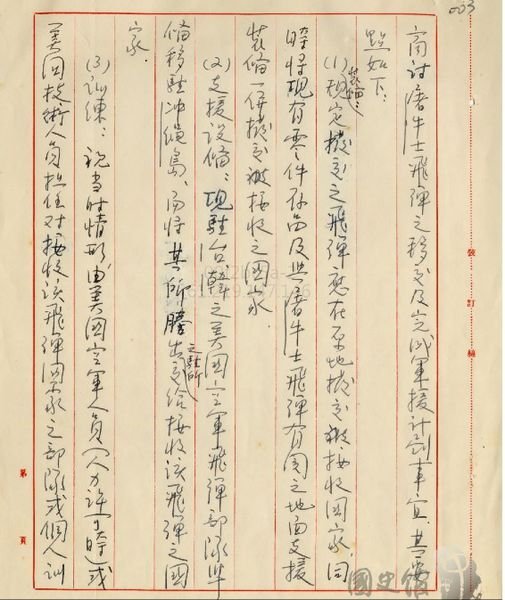 003
商討屠牛士飛彈之移交及完成軍援計劃事宜。其要
點如下:
(1)裝備:規定撥交之飛彈應在原地撥交被接收國家,同
時將現有零件存品及與屠牛士飛彈有関之地面支援
裝備一併撥交被接收之国家。
(2)支援設備:現駐台、韓之美國空軍飛彈部隊準
備移駐冲繩島,而將其所騰出之駐所交給接收該飛彈之國
家。
(3)訓練:視当时情形,由美國空軍人員(人力許可时)或
美国技術人員担任对接收該飛彈國家之部隊或個人訓
裝訂線
第 頁
國史館